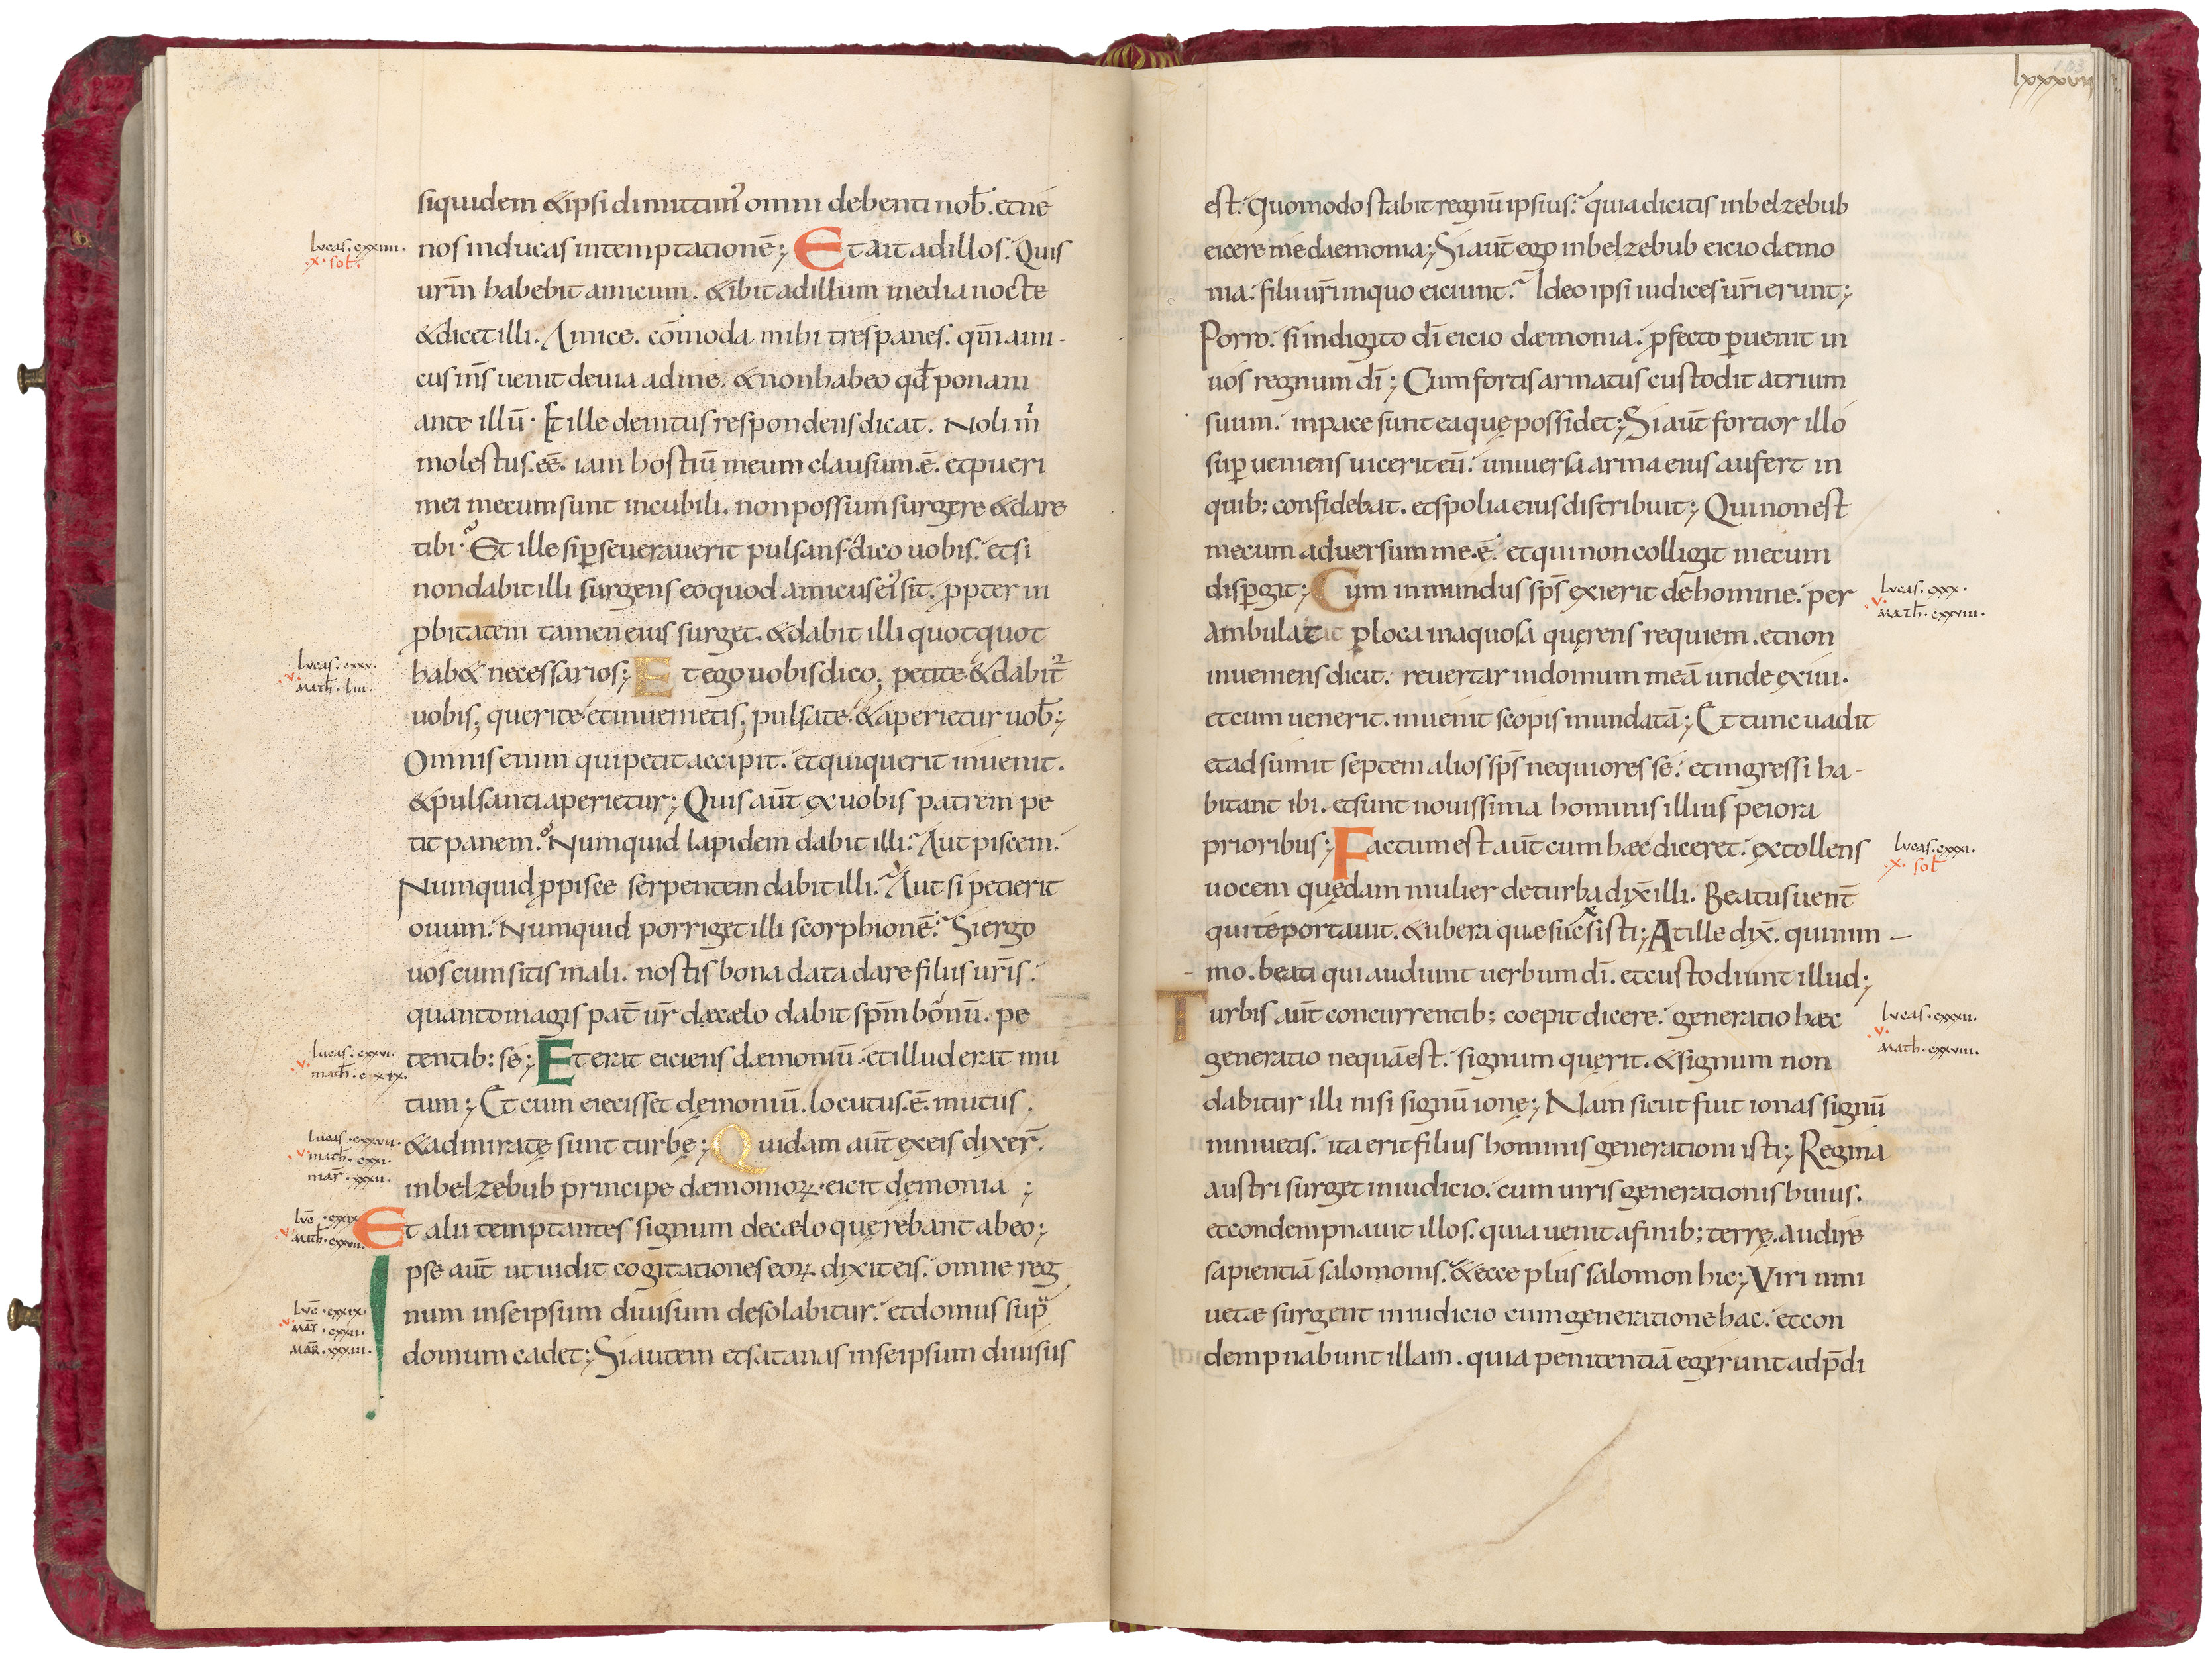 siquidem &ipsi dimittim᾽ omni debenti nob̄. etne
lucas. cxxiiii.
x. sol.
nos inducas intemptationē; Et ait ad illos. Quis
ur̄m habebit amicum. &ibit ad illum media nocte
&dicet illi. Amice. cōmoda mihi tres panes. qm̄ ami-
cus m̄s uenit deuia ad me. &non habeo qd̄ ponam
ante illū. Et ille deintus respondens dicat. Noli m̄
molestus.eē. iam hostiū meum clausum.ē. etpueri
mei mecum sunt incubili. non possum surgere &dare
tibi. Et ille si ꝑseuerauerit pulsans. dico uobis. etsi
non dabit illi surgens eoquod amicus ei᾽ sit. ꝓpter in
ꝓbitatem tamen eius surget. &dabit illi quotquot
lucas. cxxv.
v.
math̄. liii.
hab& necessarios; Et ego uobis dico; petite &dabit᾽
uobis; querite etinuenietis; pulsate &aperietur uob̄;
Omnis enim qui petit accipit. etqui querit inuenit.
&pulsanti aperietur; Quis aūt exuobis patrem pe
tit panem. Numquid lapidem dabit illi. Aut piscem.
Numquid ꝓpisce serpentem dabit illi. Aut si petierit
ouum. Numquid porriget illi scorphionē. Si ergo
uos cum sitis mali. nostis bona data dare filiis ur̄is.
quanto magis pat̄ ur̄ decælo dabit sp̄m bonū. pe
lucas. cxxvi.
v.
math̄. cxix.
tentib: sé; Et erat eiciens dæmoniū. et illud erat mu
tum; Et cum eiecisset dęmoniū. locutus.ē. mutus.
lucas. cxxvii.
v. math̄. cxxi.
mar̄. xxxii.
&admiratę sunt turbę; Quidam aūt exeis dixer̄.
inbelzebub principe dæmonioꝝ. eicit dęmonia;
luc̄. cxxix
v. math̄. cxxvii.
Et alii temptantes signum decælo quęrebant abeo;
Ipse aūt ut uidit cogitationes eoꝝ dixit eis. omne reg
luc̄. cxxix.
v. mat̄. cxxii.
mar̄. xxxiii.
num inseipsum diuisum desolabitur. et domus sup̄
domum cadet; Si autem etsatanas inseipsum diuisus
lxxxvii
103
est. quomodo stabit regnū ipsius. quia dicitis inbelzebub
eicere me daemonia; Si aūt ego inbelzebub eicio dæmo
nia. filii ur̄i inquo eiciunt. Ideo ipsi iudices ur̄i erunt;
Porro. si indigito dī eicio dæmonia. ꝓfecto ꝑuenit in
uos regnum dī; Cum fortis armatus custodit atrium
suum. inpace sunt ea quę possidet; Si aūt fortior illo
suꝑueniens uicerit eū. uniuersa arma eius aufert in
quib: confidebat. etspolia eius distribuit; Qui non est
mecum aduersum me.ē. et qui non colligit mecum
lucas. cxxx.
v.
math̄. cxxviii.
disꝑgit; Cum inmundus sp̄s exierit dehomine. per
ambulat ꝑloca inaquosa quęrens requiem. etnon
inueniens dicit. reuertar indomum meā unde exiui.
et cum uenerit. inuenit scopis mundatā; Et tunc uadit
etadsumit septem alios sp̄s nequiores se. etingressi ha-
bitant ibi. etsunt nouissima hominis illius peiora
lucas. cxxxi.
x. sol̄
prioribus; Factum est aūt cum hæc diceret. extollens
uocem quędam mulier deturba dix̄ illi. Beatus uent̄
qui te portauit. &ubera quæ sucsisti; At ille dix̄. quinim-
mo. beati qui audiunt uerbum dī. etcustodiunt illud;
lucas. cxxxii.
v.
math̄. cxxviii.
Turbis aūt concurrentib; coepit dicere. generatio hæc
generatio nequā est. signum quęrit. &signum non
dabitur illi nisi signū ionę; Nam sicut fuit ionas signū
niniuetis. ita erit filius hominis generationi isti; Regina
austri surget iniudicio. cum uiris generationis huius.
etcondempnauit illos. quia uenit afinib; terrę. audire
sapientiā salomonis. &ecce plus salomon hic; Viri nini
uetæ surgent iniudicio cum generatione hac. etcon
dempnabunt illam. quia penitentiā egerunt adp̄di